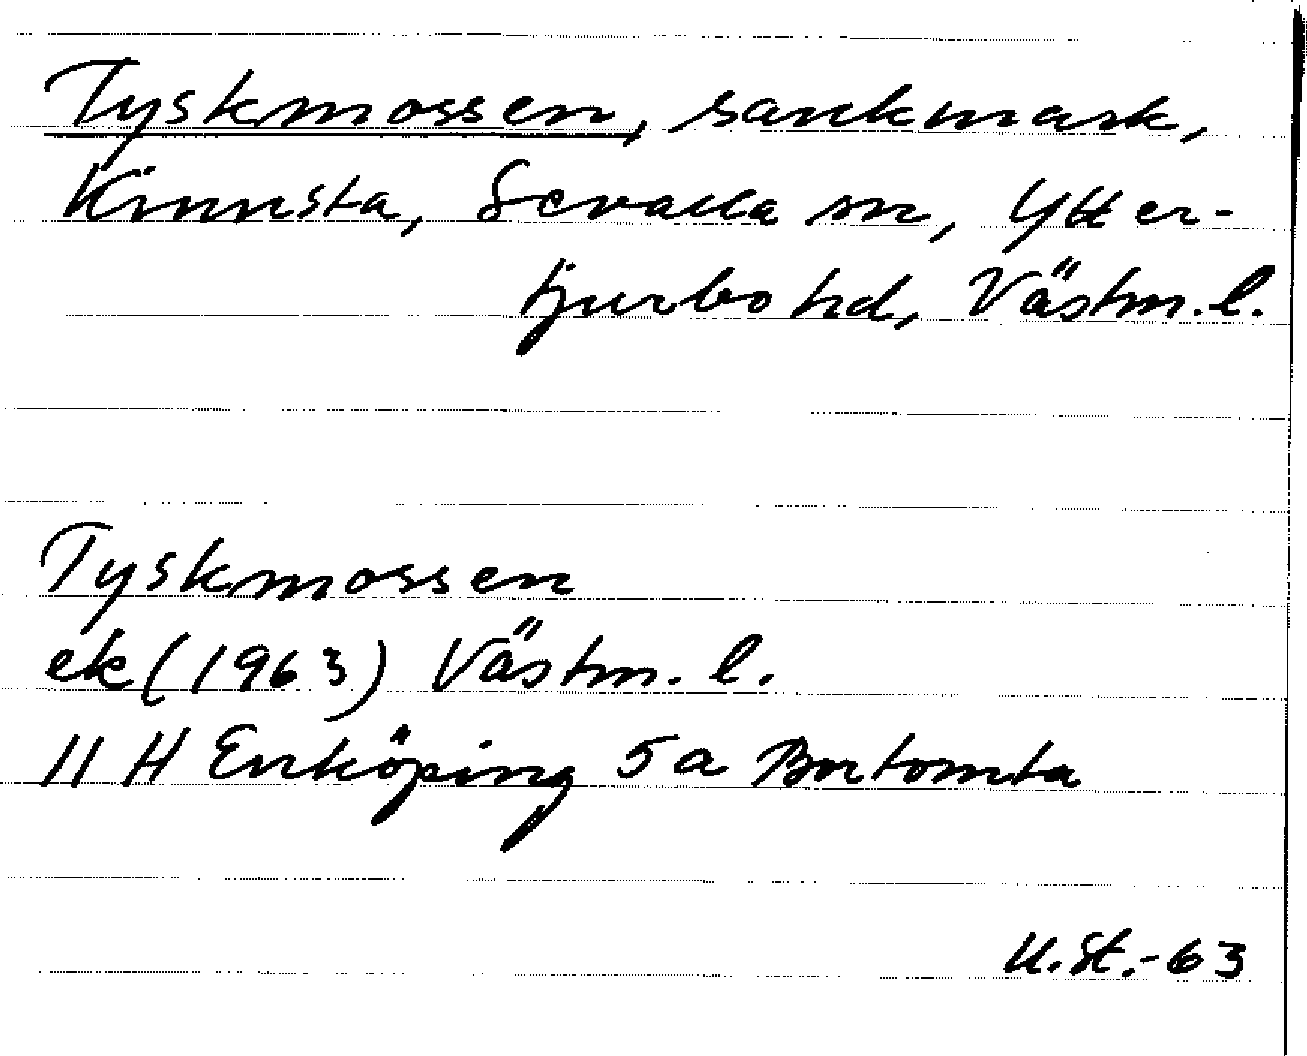 Tyskmossen, sankmark,
Kinnsta, Sevalla sn, Ytter-
tjurbo hd, Västm. l.
Tyskmossen
ek (1963) Västm. l.
11 H Enköping 5 a Bortomta
U. St. -63